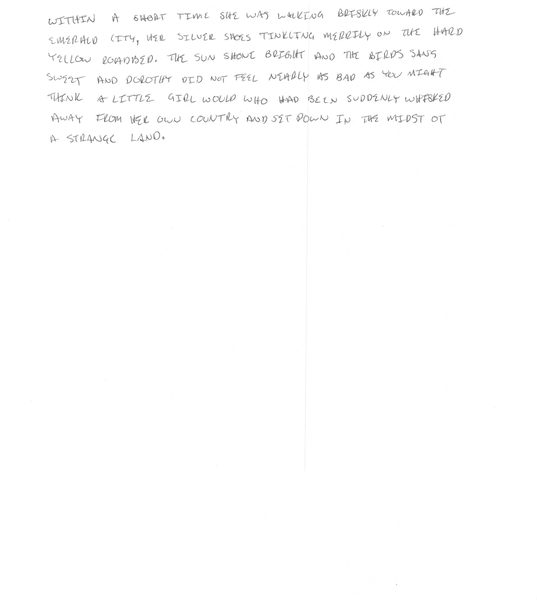 WITHIN A SHORT TIME SHE WAS WALKING BRISKLY TOWARD THE
EMERALD CITY, HER SILVER SHOES TINKLING MERRILY ON THE HARD
YELLOW ROADBED. THE SUN SHONE BRIGHT AND THE BIRDS SANG
SWEET AND DOROTHY DID NOT FEEL NEARLY AS BAD AS YOU MIGHT
THINK A LITTLE GIRL WOULD WHO HAD BEEN SUDDENLY WHISKED
AWAY FROM HER OWN COUNTRY AND SET DOWN IN THE MIDST OF
A STRANGE LAND.